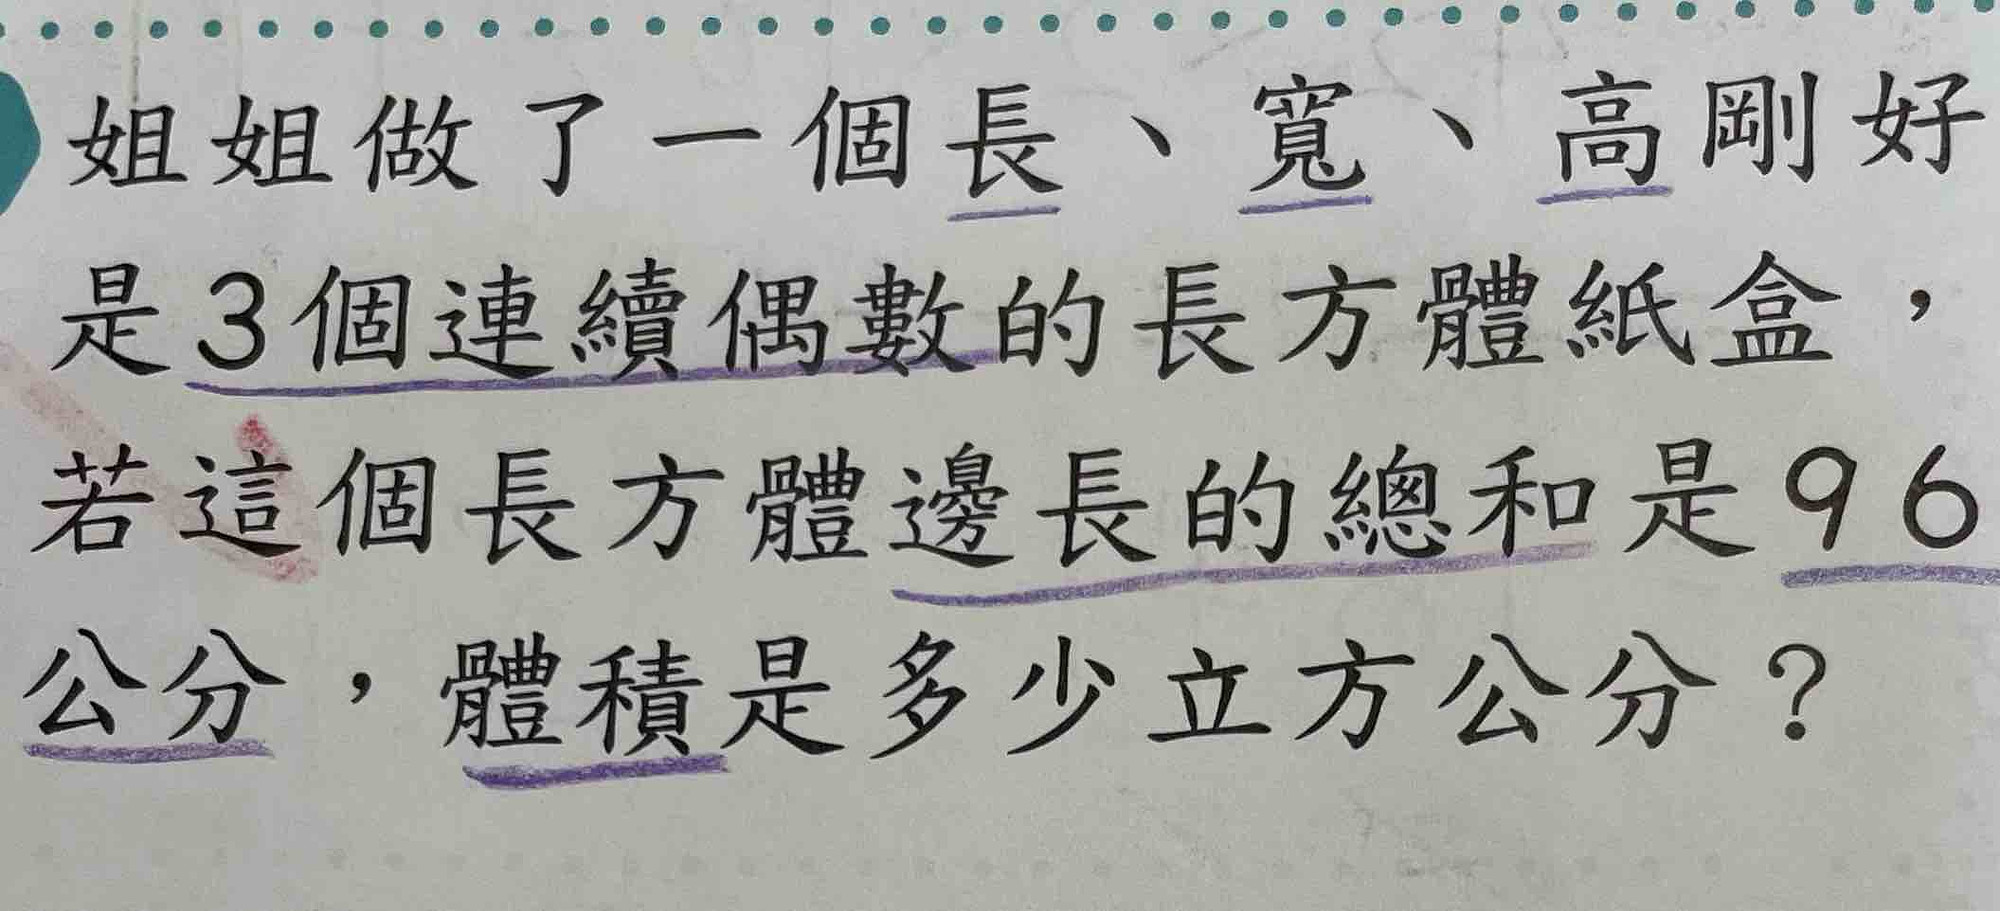 姐姐做了一個長、寬、高剛好
是3個連續偶數的長方體紙盒，
若這個長方體邊長的總和是96
公分，體積是多少立方公分？